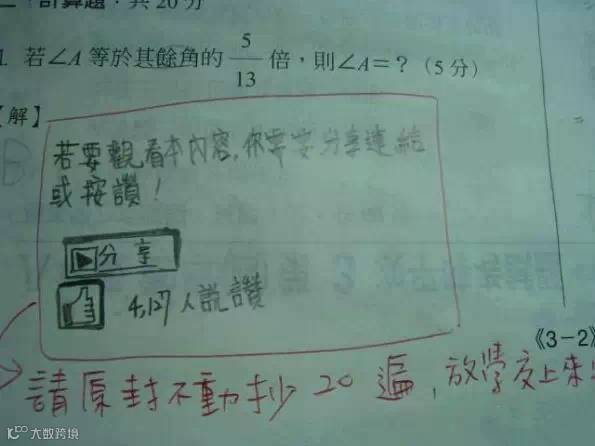 二、計算題：共20分
1. 若∠A等於其餘角的 5/13 倍，則∠A=？（5分）
【解】
若要觀看本內容，你需要分享連結
或按讚！
分享
4,127人說讚
《3-2》
請原封不動抄20遍，放學交上來
大数跨境